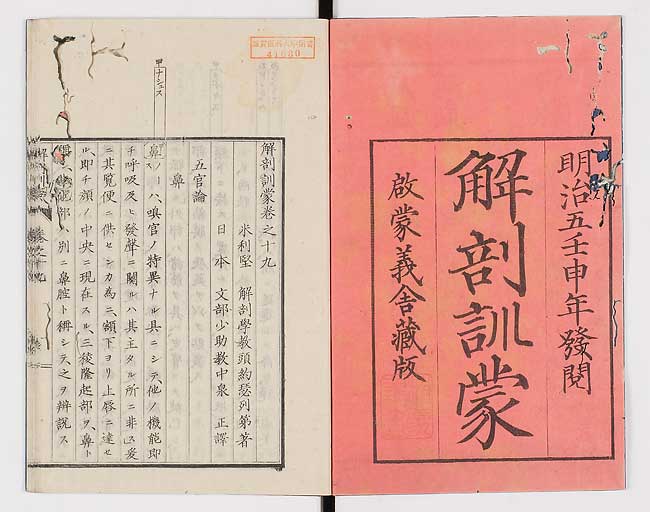 明治五壬申年發閱
解剖訓蒙
啟蒙義舎藏版
41680
甲ナシュス
解剖訓蒙卷之十九
米利堅 解剖學教頭約瑟列第著
日本 文部少助教中泉 正譯
五官論
鼻
鼻ノーハ、嗅官ノ特異ナル具ニシテ他ノ機能即
チ呼吸及ヒ發聲ニ關ルハ其主タル所ニ非ス爰
ニ其覧便ニ供センカ為ニ額下ヨリ上唇ニ達セ
ル、即チ顏ノ中央ニ現在スル、三稜隆起部ヲ、鼻ト
別ニ鼻腔ト稱シテ之ヲ辨説ス